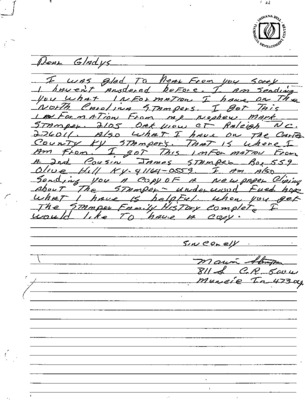 Dear Gladys
I was glad To Hear From you Sorry
I haven't answered before. I am Sending
you what Information I have on The
North Carolina Stampers. I Got This
information From my nephew Mark
Stamper 2105 Oak view ct Raleigh NC.
Also what I have on The Carter
County Ky Stampers. That is where I
Am From. I got This information From
a 2nd Cousin James Stamper Box 559
Olive Hill Ky. 41164-0559. I am Also
Sending you a Copy of a newspaper Cliping
About The Stamper - Underwood Fued hope
what I have is helpful. when you get
The Stamper Family History Complete, I
would like To have a copy.
Sincerely
Stamper
811 S C.R. 500 W
Muncie In